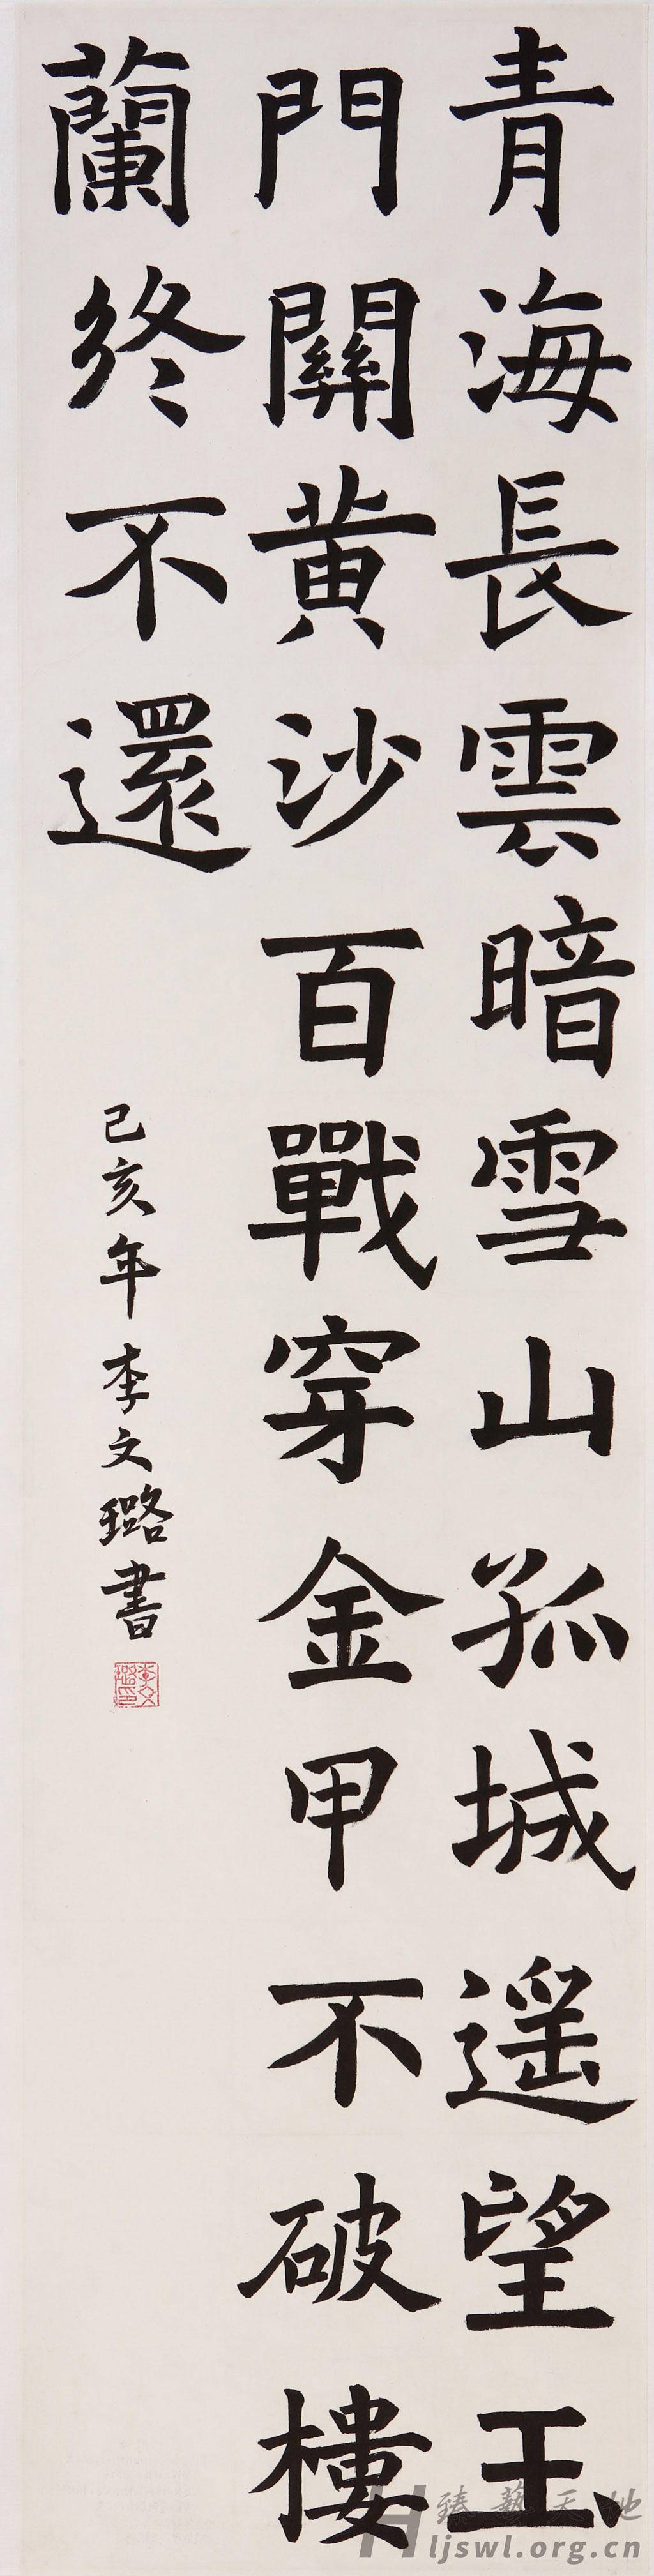 青海長雲暗雪山孤城遥望玉
門關黄沙百戰穿金甲不破樓
蘭終不還
己亥年李文璐書
李文璐印
臻藝天地
Hljswl.org.cn